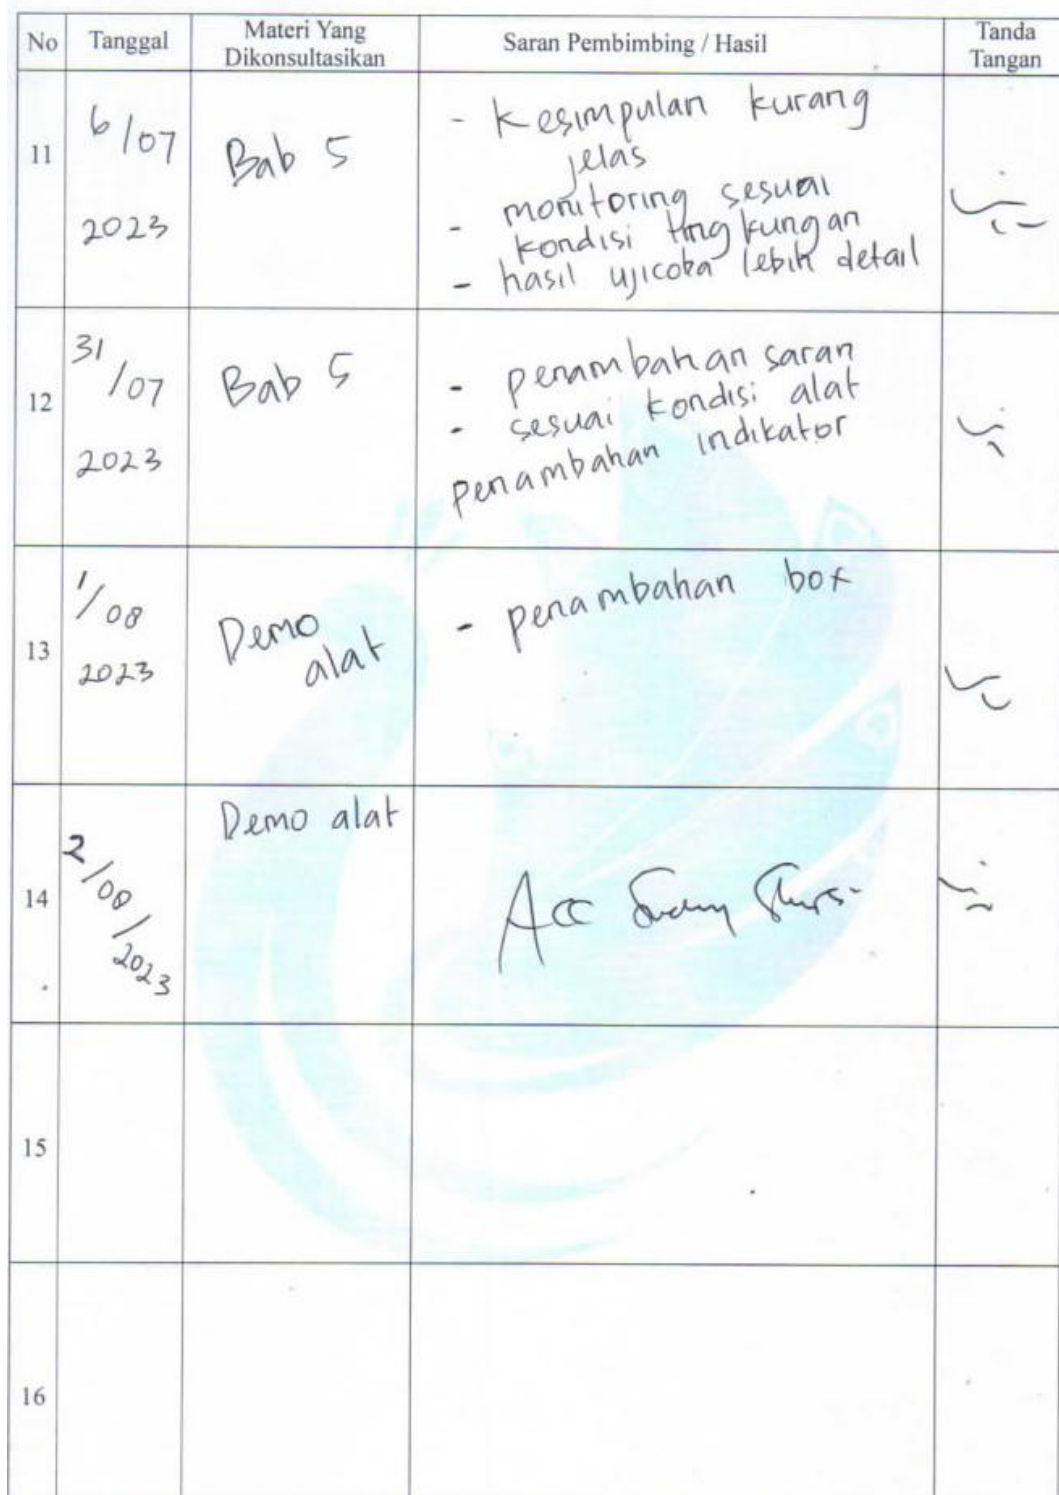 No Tanggal Materi Yang Dikonsultasikan Saran Pembimbing / Hasil Tanda Tangan
11
6/07
2023
Bab 5
- Kesimpulan kurang
jelas
- monitoring sesuai
kondisi lingkungan
- hasil ujicoba lebih detail
12
31/07
2023
Bab 5
- penambahan saran
- sesuai kondisi alat
penambahan indikator
13
1/08
2023
Demo
alat
- penambahan box
14
2/08/2023
Demo alat
Acc
15
16